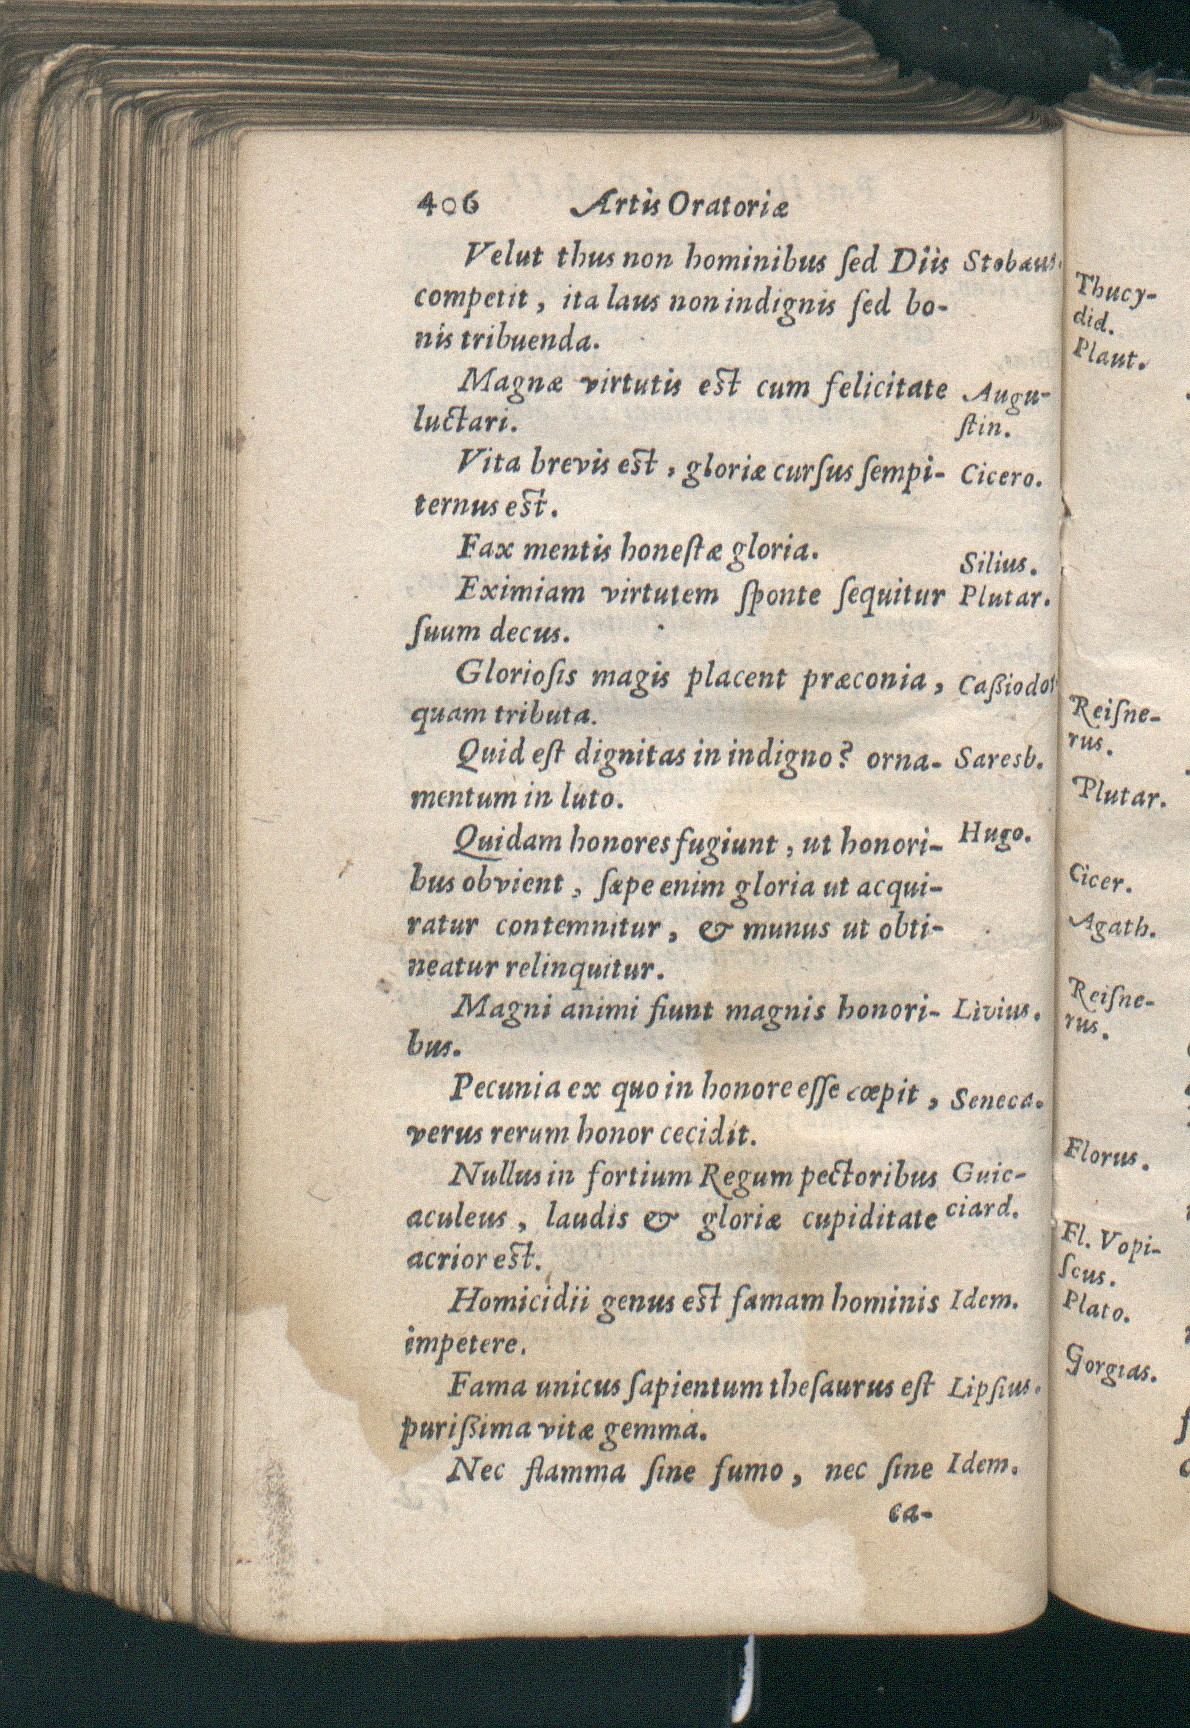 406 Artis Oratoriæ
Velut thus non hominibus ſed Diis Stobæus.
competit, ita laus non indignis ſed bo-
nis tribuenda.
Magnæ virtutis eſt cum felicitate Augu-
luctari. ſtin.
Vita brevis eſt, gloriæ curſus ſempi- Cicero.
ternus eſt.
Fax mentis honeſtæ gloria. Silius.
Eximiam virtutem ſponte ſequitur Plutar.
ſuum decus.
Glorioſis magis placent præconia, Caßiodor
quam tributa.
Quid eſt dignitas in indigno? orna- Saresb.
mentum in luto.
Quidam honores fugiunt, ut honori- Hugo.
bus obvient, ſæpe enim gloria ut acqui-
ratur contemnitur, & munus ut obti-
neatur relinquitur.
Magni animi fiunt magnis honori- Livius.
bus.
Pecunia ex quo in honore eſſe cœpit, Seneca.
verus rerum honor cecidit.
Nullus in fortium Regum pectoribus Guic-
aculeus, laudis & gloriæ cupiditate ciard.
acrior eſt.
Homicidii genus eſt famam hominis Idem.
impetere.
Fama unicus ſapientum theſaurus eſt Lipſius.
purißima vitæ gemma.
Nec flamma ſine fumo, nec ſine Idem.
ca-
Thucy-
did.
Plaut.
Reiſne-
rus.
Plutar.
Cicer.
Agath.
Reiſne-
rus.
Florus.
Fl. Vopi-
ſcus.
Plato.
Gorgias.